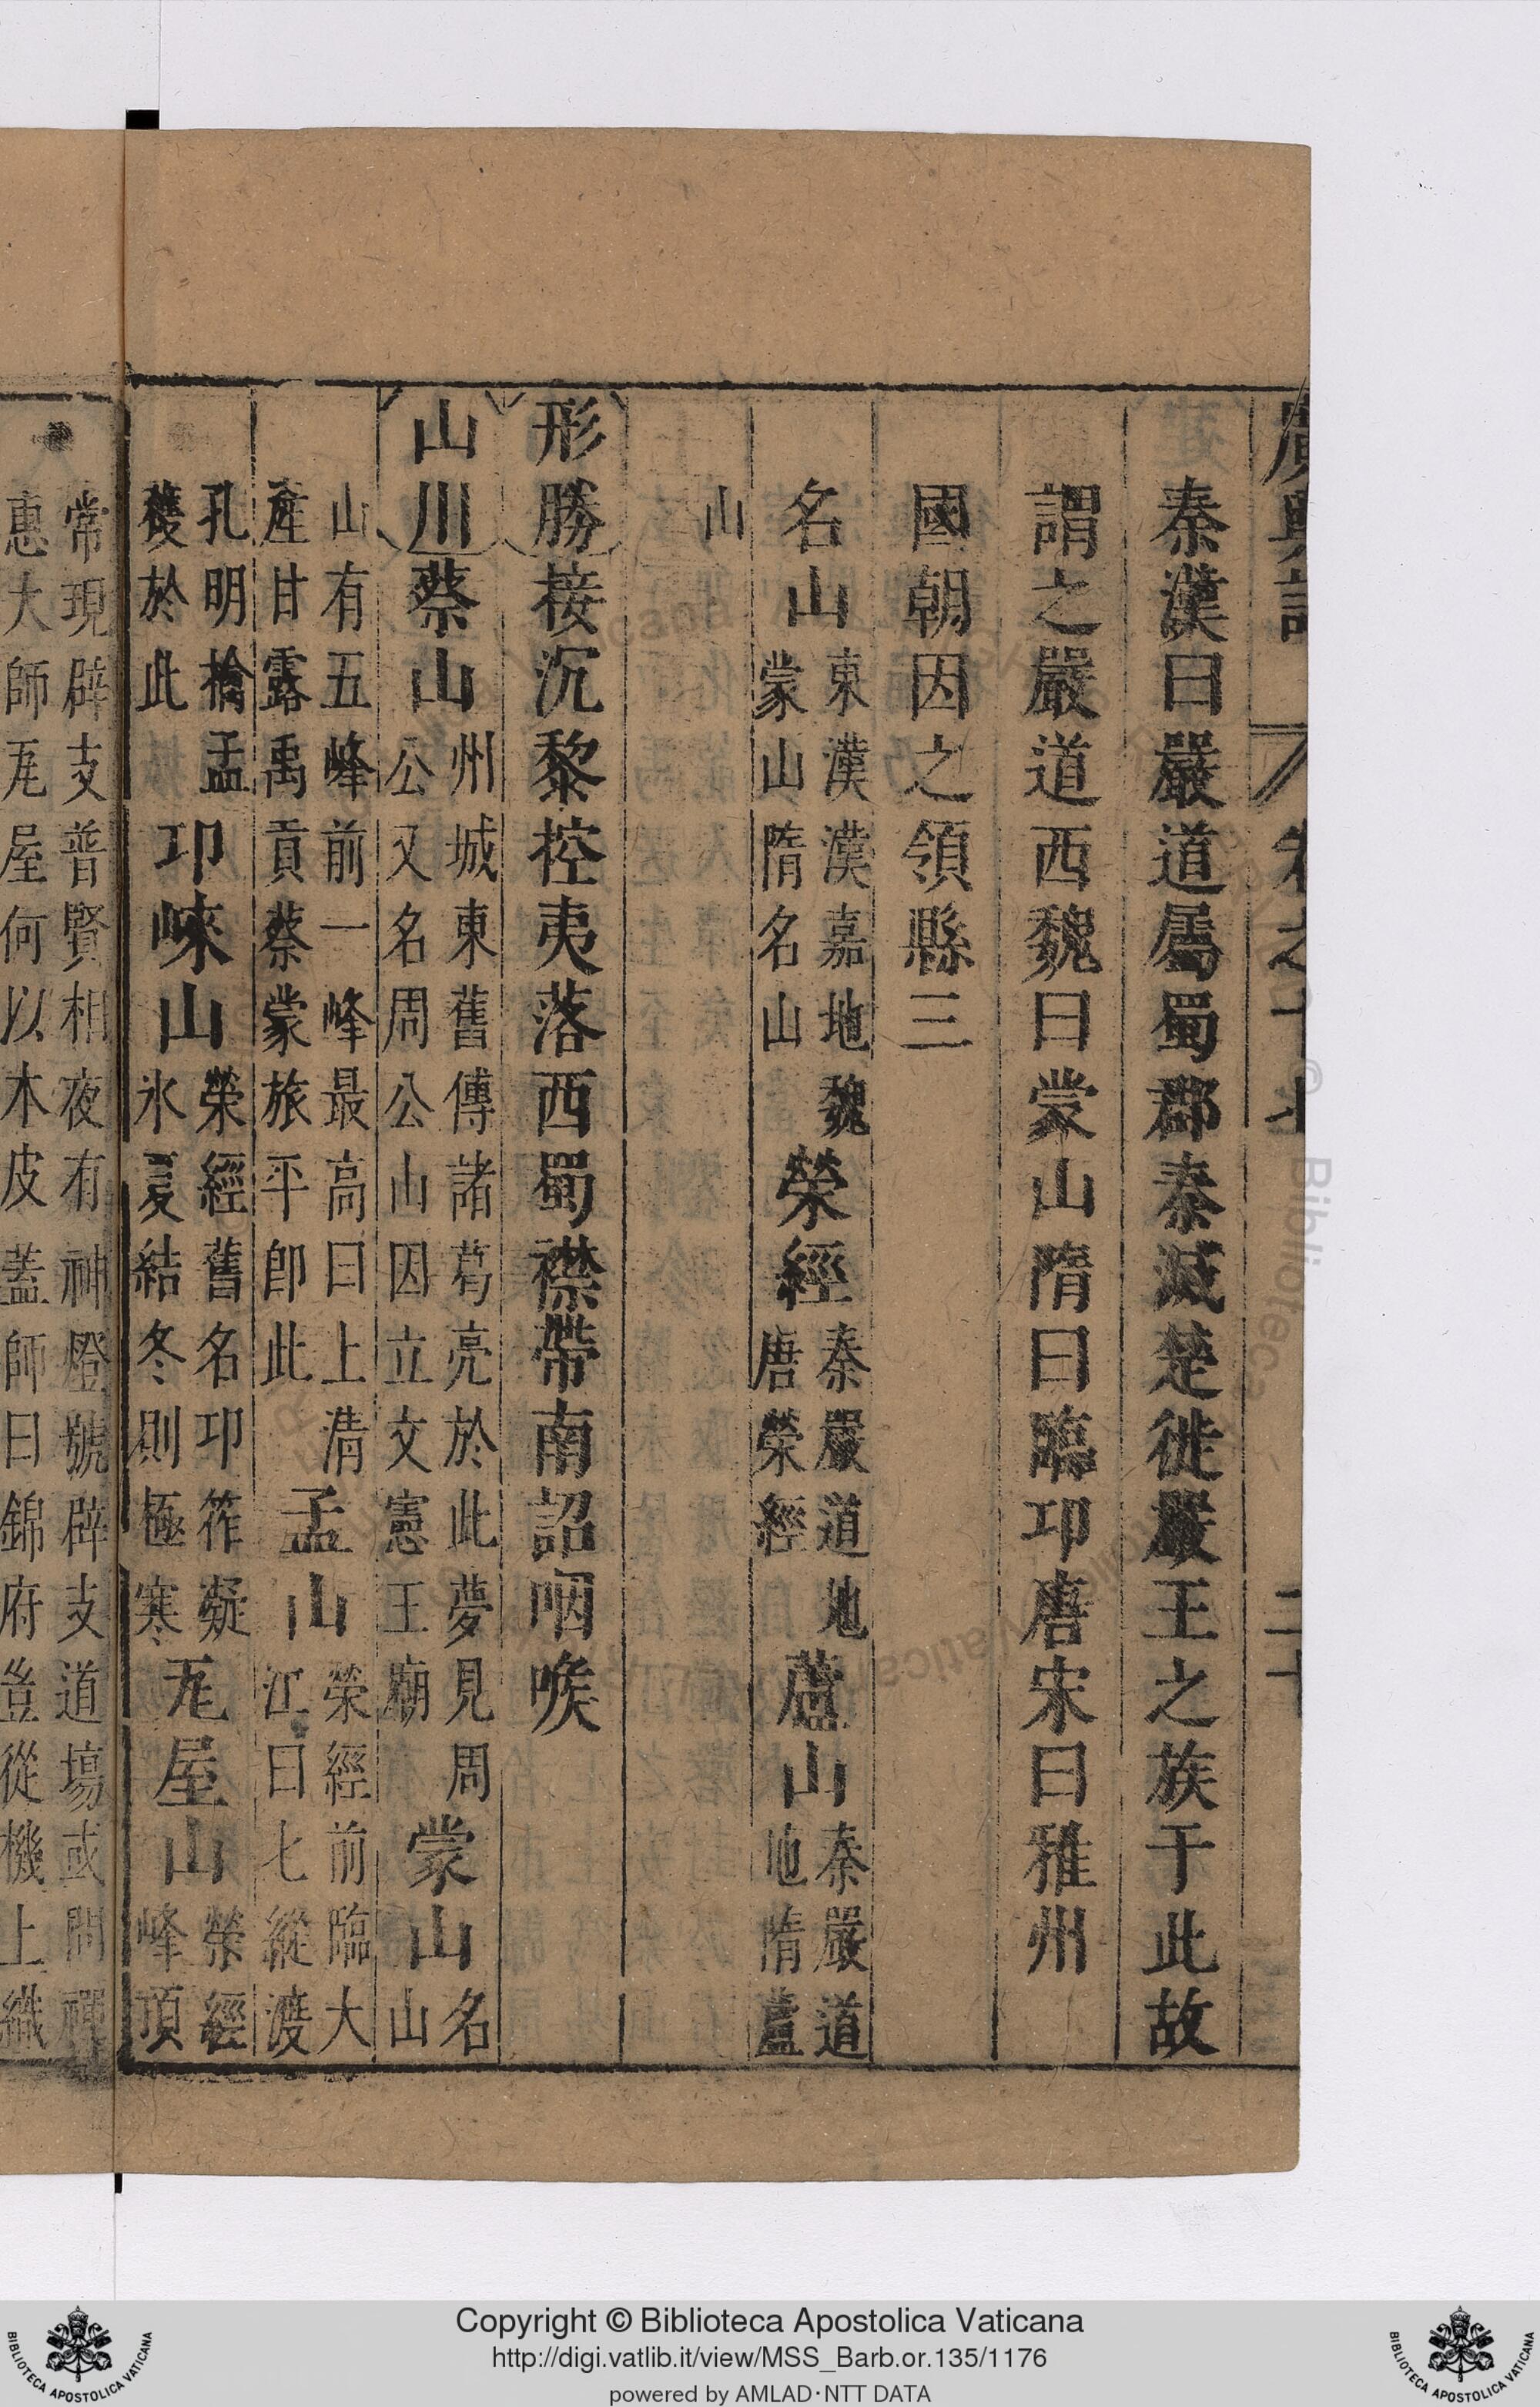 廣輿記 卷之十七 二十
秦漢曰嚴道屬蜀郡秦滅楚徙嚴王之族于此故
謂之嚴道西魏曰蒙山隋曰臨邛唐宋曰雅州
國朝因之領縣三
名山東漢漢嘉地魏
蒙山隋名山榮經秦嚴道地
唐榮經蘆山秦嚴道
地隋蘆
山
形勝接沉黎控夷落西蜀襟帶南詔咽喉
山川蔡山州城東舊傳諸葛亮於此夢見周
公又名周公山因立文憲王廟蒙山名
山
山有五峰前一峰最高曰上清
產甘露禹貢蔡蒙旅平卽此孟山榮經前臨大
江曰七縱渡
孔明擒孟
獲於此邛崍山榮經舊名邛筰凝
氷夏結冬則極寒瓦屋山榮經
峰頂
常現辟支普賢相夜有神燈號辟支道塲或問禪
惠大師瓦屋何以木皮蓋師曰錦府豈從機上織
Copyright © Biblioteca Apostolica Vaticana
http://digi.vatlib.it/view/MSS_Barb.or.135/1176
powered by AMLAD·NTT DATA
BIBLIOTECA APOSTOLICA VATICANA
BIBLIOTECA APOSTOLICA VATICANA